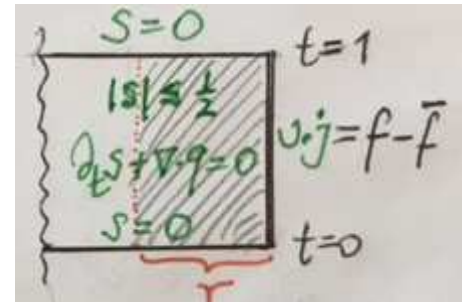 S = 0
t = 1
|s| ≤ 1/2
∂ₜs + ∇·q = 0
ν·j = f - f̄
s = 0
t = 0
r